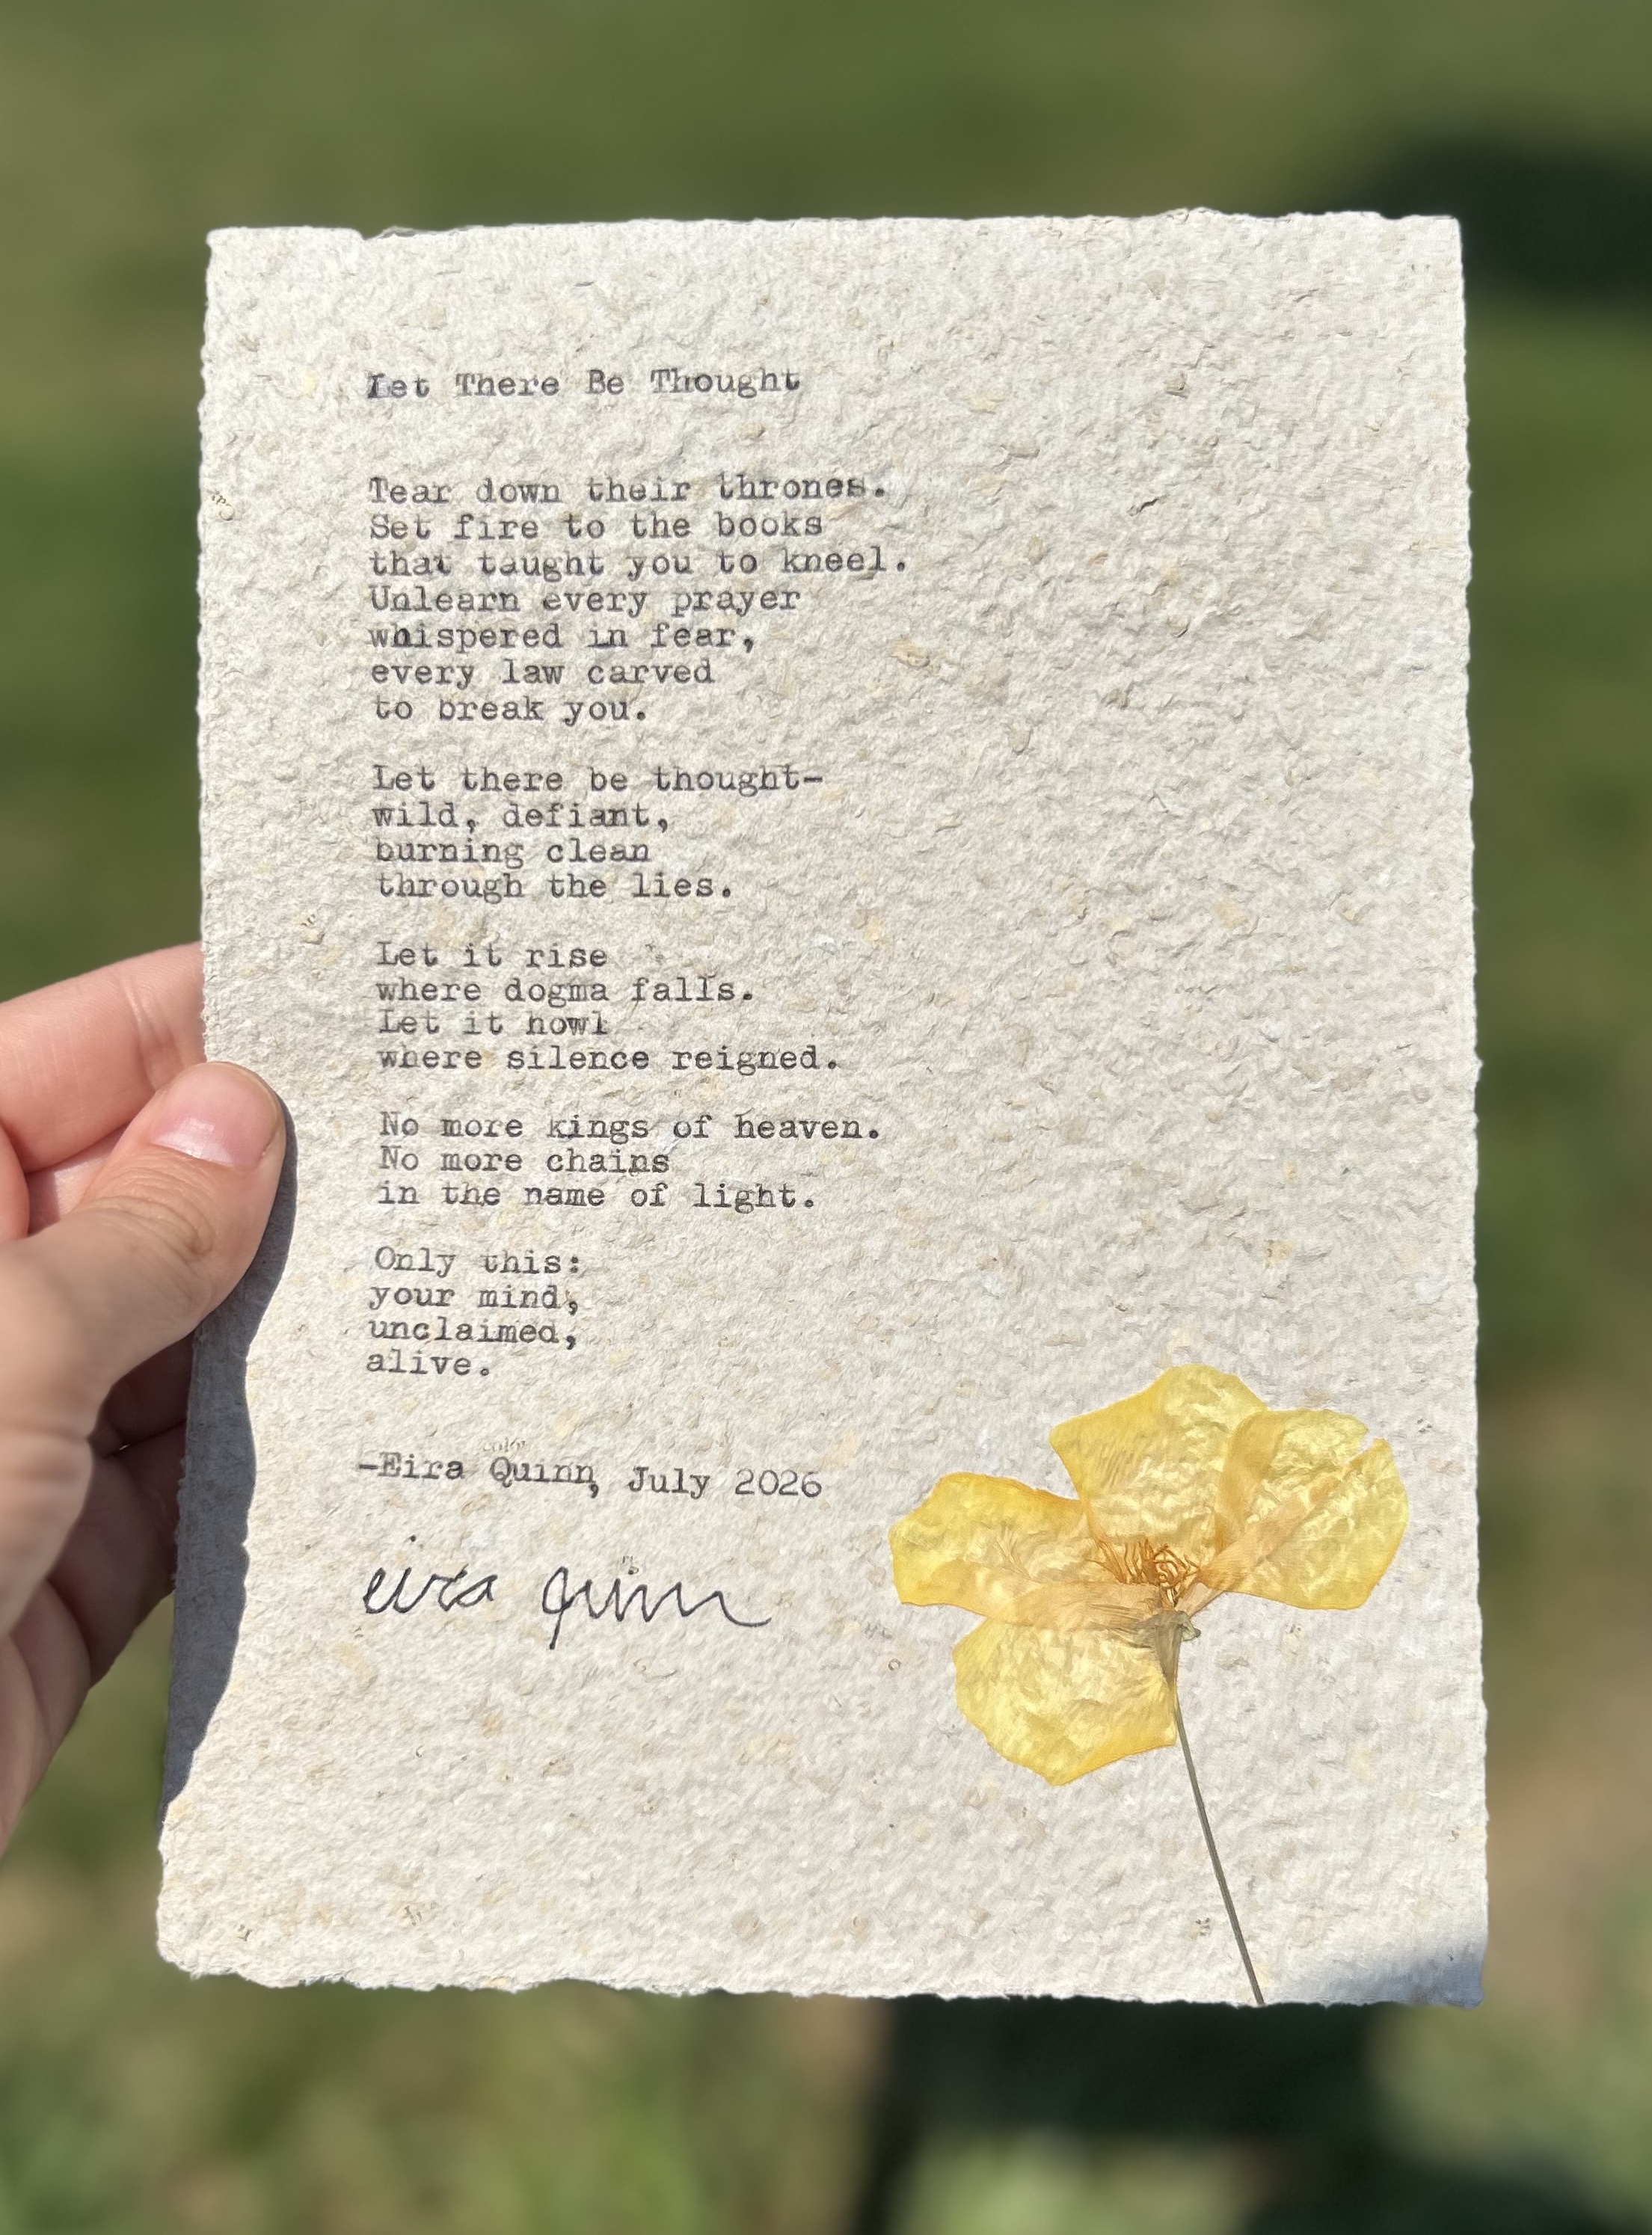 Let There Be Thought
Tear down their thrones.
Set fire to the books
that taught you to kneel.
Unlearn every prayer
whispered in fear,
every law carved
to break you.
Let there be thought-
wild, defiant,
burning clean
through the lies.
Let it rise
where dogma falls.
Let it howl
where silence reigned.
No more kings of heaven.
No more chains
in the name of light.
Only this:
your mind,
unclaimed,
alive.
-Eira Quinn, July 2026
eira quinn